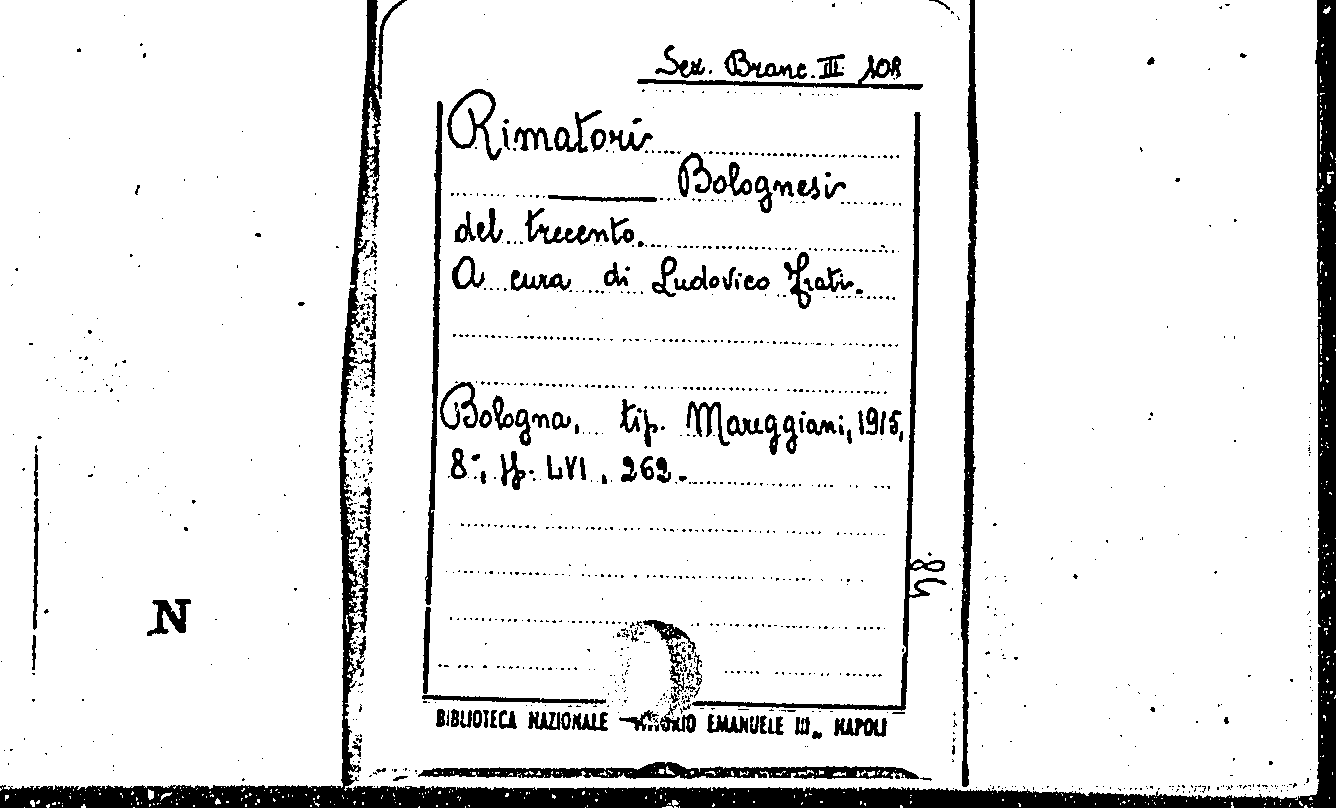 Sez. Branc. III 108
Rimatori
Bolognesi
del trecento.
A cura di Ludovico Frati.
Bologna, tip. Mareggiani, 1915,
8°, pp. LVI, 262.
N
BIBLIOTECA NAZIONALE EMANUELE III„ NAPOLI